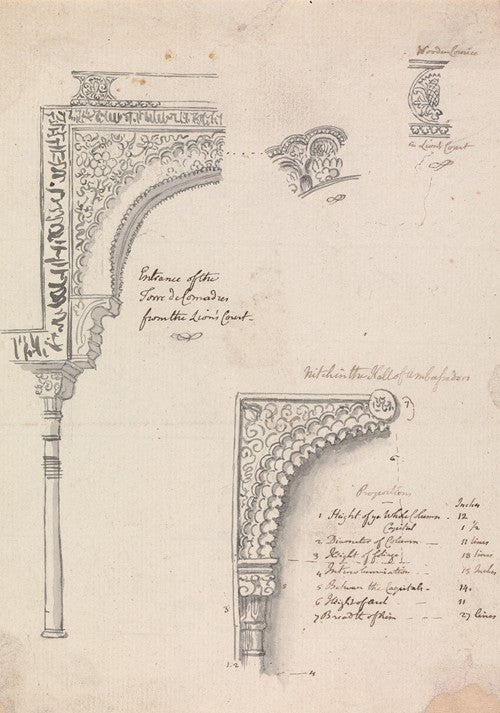 Wooden Cornice
in Lion's Court
Entrance of the
Torre de Comadres
from the Lion's Court -
Nitch in the Hall of Ambassadors
7
6
Proportions
Inches
1 Hight of ye Whole Column - 12
Capital 1 ½
2 Diameter of Column - 11 lines
3 Hight of - 18 lines
4 Intercolumniation - 15 Inches
5 Between the Capitals - 14
6 Hight of arch - 11
7 Breadth of - 27 lines
5
3
1.2
4